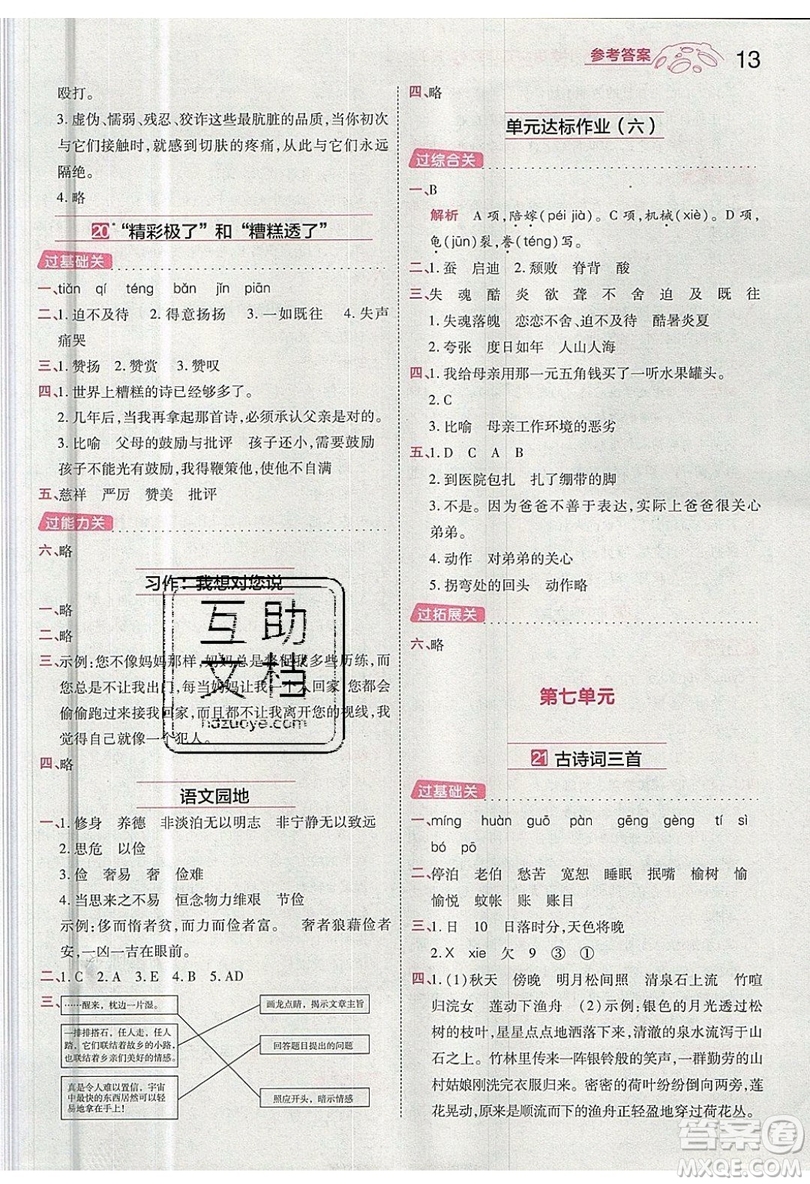 参考答案
13
殴打。
3. 虚伪、懦弱、残忍、狡诈这些最肮脏的情感,当你初次
与它们接触时,就感到切肤的疼痛,从而与它们永远
隔绝。
4. 略
20* “精彩极了”和“糟糕透了”
过基础关
一、tiān qí téng bǎn jǐn piān
二、1. 迫不及待 2. 得意扬扬 3. 一如既往 4. 失声
痛哭
三、1. 赞扬 2. 赞赏 3. 赞叹
四、1. 世界上糟糕的诗已经够多了。
2. 几年后,当我再拿起那首诗,必须承认父亲是对的。
3. 比喻 父母的鼓励与批评 孩子还小,需要鼓励
孩子不能光有鼓励,我们得鞭策他,使他不自满
五、慈祥 严厉 赞美 批评
过能力关
六、略
习作:我想对您说
一、略
二、略
三、示例:您不像妈妈那样,妈妈总是督促我多些历练,而
您总是不让我出门,每当妈妈让我一个人回家,您就会
偷偷跑过来接我回家,似乎只要我离开您的视线,我就
觉得是一个犯人。
四、略
语文园地
一、1. 修身 养德 非淡泊无以明志 非宁静无以致远
2. 思危 以俭
3. 俭 奢易 奢易 俭难
4. 当思来处不易 恒念物力维艰 节俭
示例:侈而惰者贫,而力而俭者富。 奢者狼藉俭者
安,一凶一吉在眼前。
二、1. C 2. A 3. D 4. B 5. AD
三、
……醒来,枕边一片湿。
一排排搭石,任人走,任人
踏,它们联结着故乡的小路,
也联结着乡亲们美好的情感。
真是令人难以置信,宇宙
中最快的东西居然可以轻
易地拿在手上!
画龙点睛,揭示文章主旨
回答题目提出的问题
照应开头,暗示情感
四、略
单元达标作业(六)
过综合关
一、B
解析 A 项,陪嫁(péi jià)。C 项,机械(xiè)。D 项,
龟(jūn)裂,誊(téng)写。
二、1. 蚕 启迪 2. 颓败 脊背 酸
三、失 魂 酷 炎 欲 聋 不 舍 迫 及 既 往
1. 失魂落魄 恋恋不舍 酷暑炎夏
2. 夸张 度日如年 人山人海
四、1. 我给母亲用那一元五角钱买了一听水果罐头。
2. C
3. 比喻 母亲工作环境的恶劣
五、1. C
2. 到医院包扎 扎了绷带的脚丫
3. 不是。因为爸爸不善于表达,实际上爸爸很关心
弟弟。
4. 动作 对弟弟的关心
5. 拐弯处的回头 动作略
过拓展关
六、略
第七单元
21 古诗词三首
过基础关
一、míng huàn guō pàn gēng gèng tí sì
bó pō
二、停泊 老伯 愁苦 宽恕 睡眠 泯灭 榆树 愉
愉悦 蚊帐 账 账目
三、1. 日 10 日落时分,天色将晚
2. X xie 欠 9 ③ ①
四、1. (1)秋天 傍晚 明月松间照 清泉石上流 竹喧
归浣女 莲动下渔舟 (2)示例:银色的月光透过松
树的枝叶,星星点点地洒落下来,清澈的泉水流泻于山
石之上。竹林里传来一阵银铃般的笑声,一群勤劳的山
村姑娘刚洗完衣服归来。密密的荷叶纷纷倾向两旁,莲
花晃动,原来是顺流而下的渔舟正轻盈地穿过荷花丛。
互助
文档
hdzuoye.com
答案圈
MXQE.COM